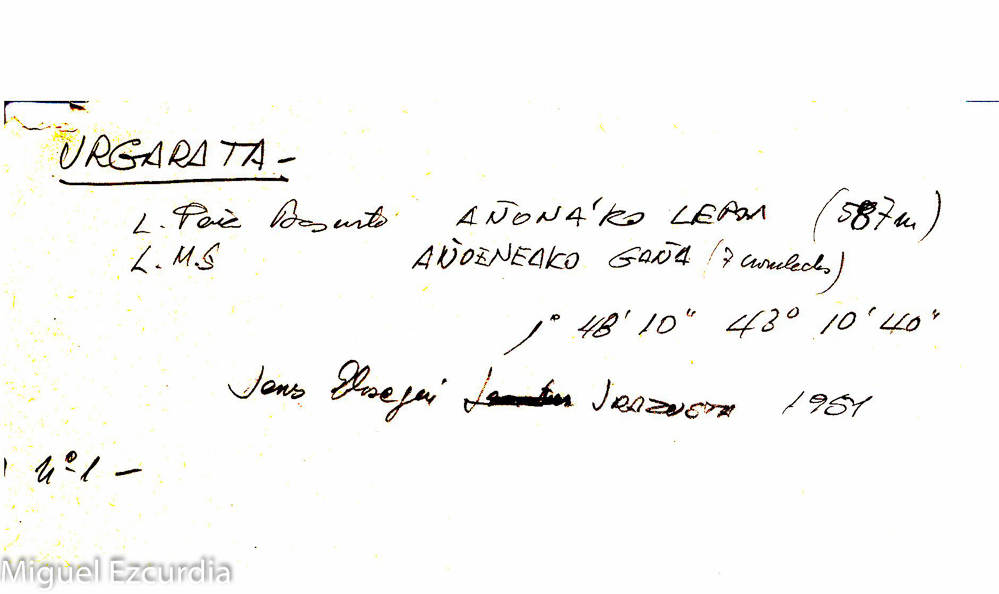 URGARATA-
L. Basurto AÑONÁ'KO LEPOA (587m)
L.M.S AÑOENEAKO GAÑA (7 cromlechs)
1º 48' 10" 43º 10' 40"
Jesus Elosegui IRAZUSTA 1951
nº1 -
Miguel Ezcurdia